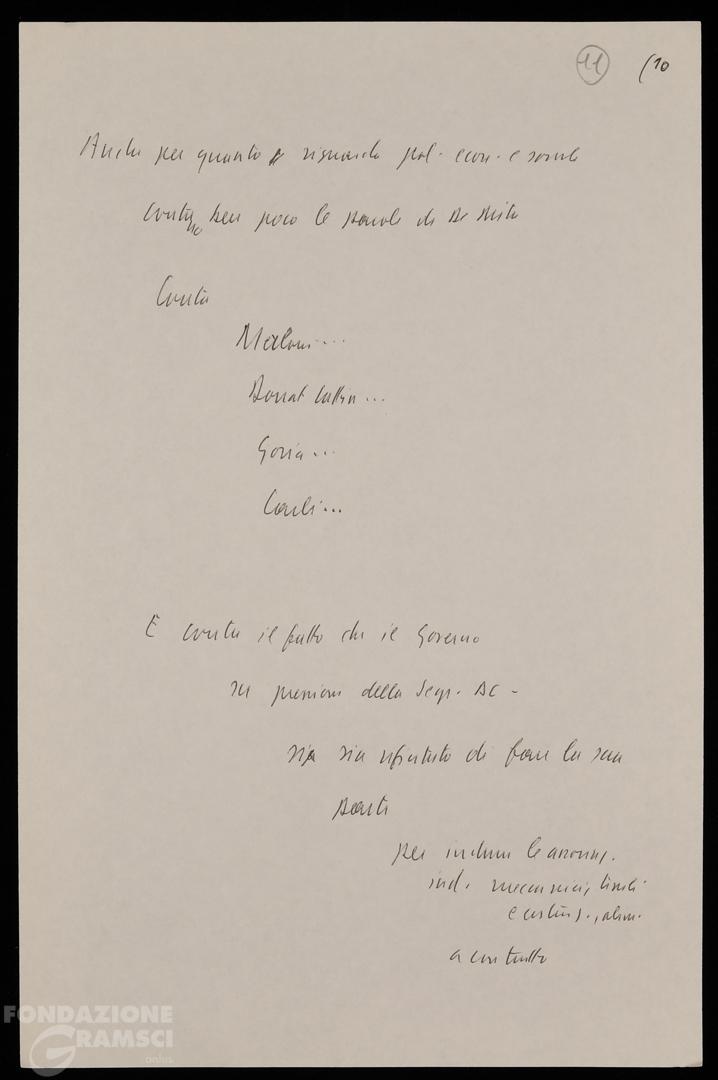 11 (10
Anche per quanto riguarda pol. econ. e sociale
contano ben poco le parole di De Mita
Conta
Donat Cattin...
Goria...
Carli...
E conta il fatto che il Governo
su pressioni della Segr. DC -
si sia rifiutato di fare la sua
parte
per indurre le
ind. meccanici, tessili
e costruz., alim.
a contratto
FONDAZIONE
GRAMSCI
onlus